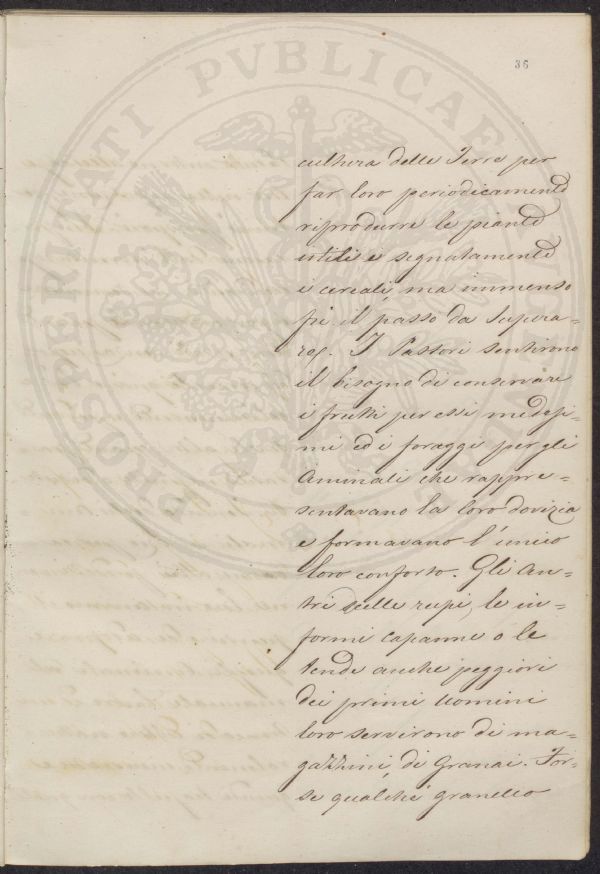 36
cultura delle Terre per
far loro periodicamente
riprodurre le piante
utili e segnatamente
i cereali, ma immenso
fu il passo da supera-
rsi. I Pastori sentirono
il bisogno di conservare
i frutti per essi medesi-
mi ed i foraggi per gli
Animali che rappre-
sentavano la loro dovizia
e formavano l'unico
loro conforto. Gli An-
tri delle rupi, le in-
formi capanne o le
tende anche peggiori
dei primi uomini
loro servirono di ma-
gazzini, di Granai. For-
se qualche granello
PROSPERITATI PVBLICAE